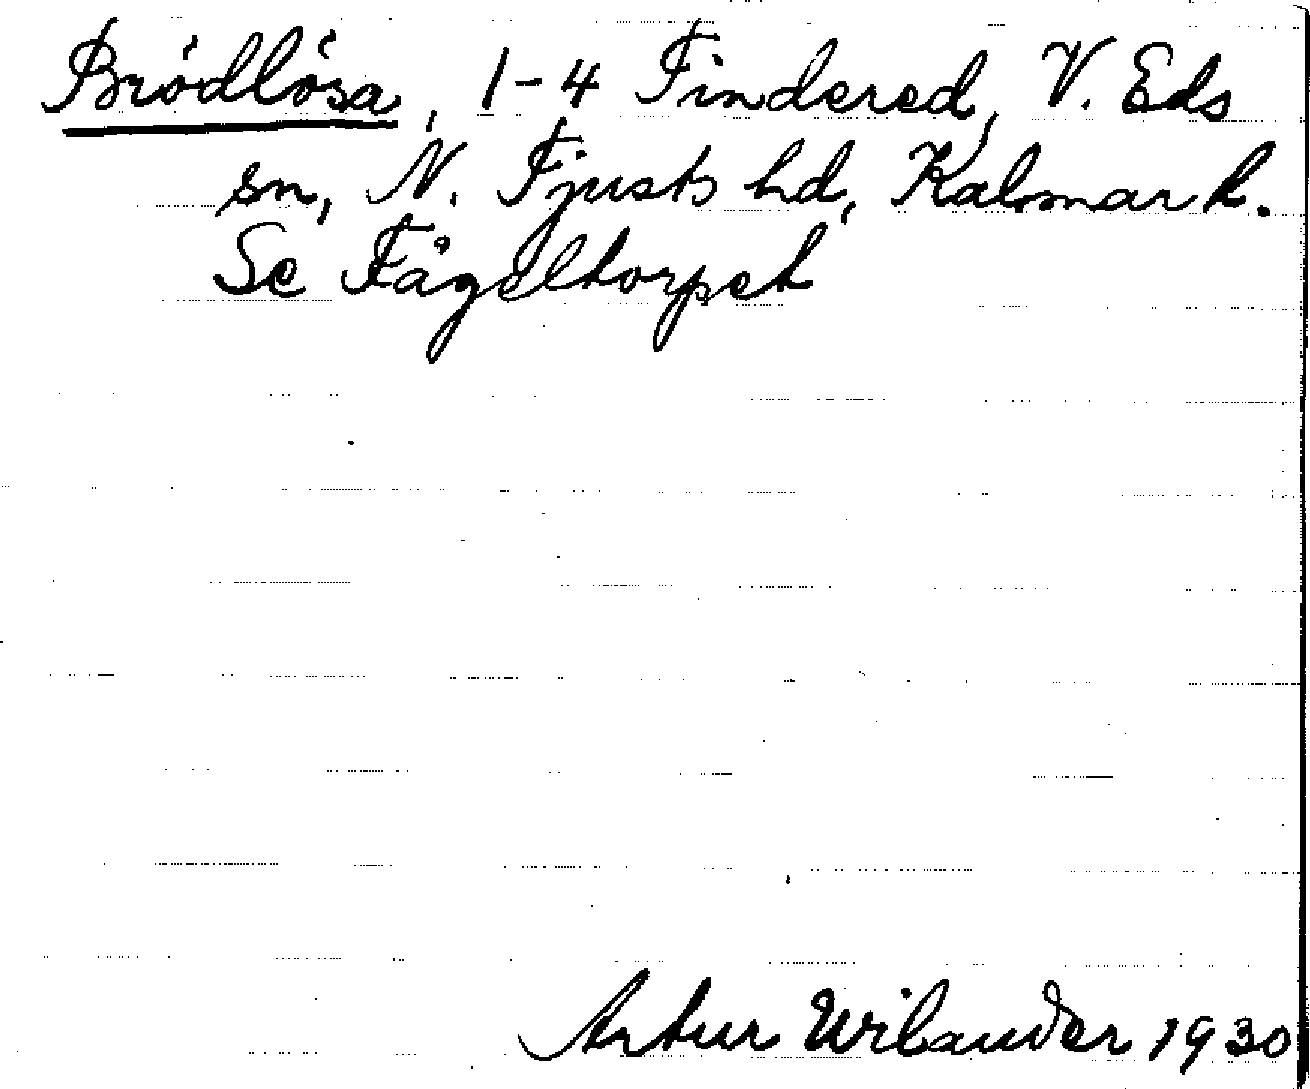 Brödlösa, 1-4 Tindered, V. Eds
sn, N. Tjusts hd, Kalmar l.
Se Fågeltorpet
Artur Wilander 1930